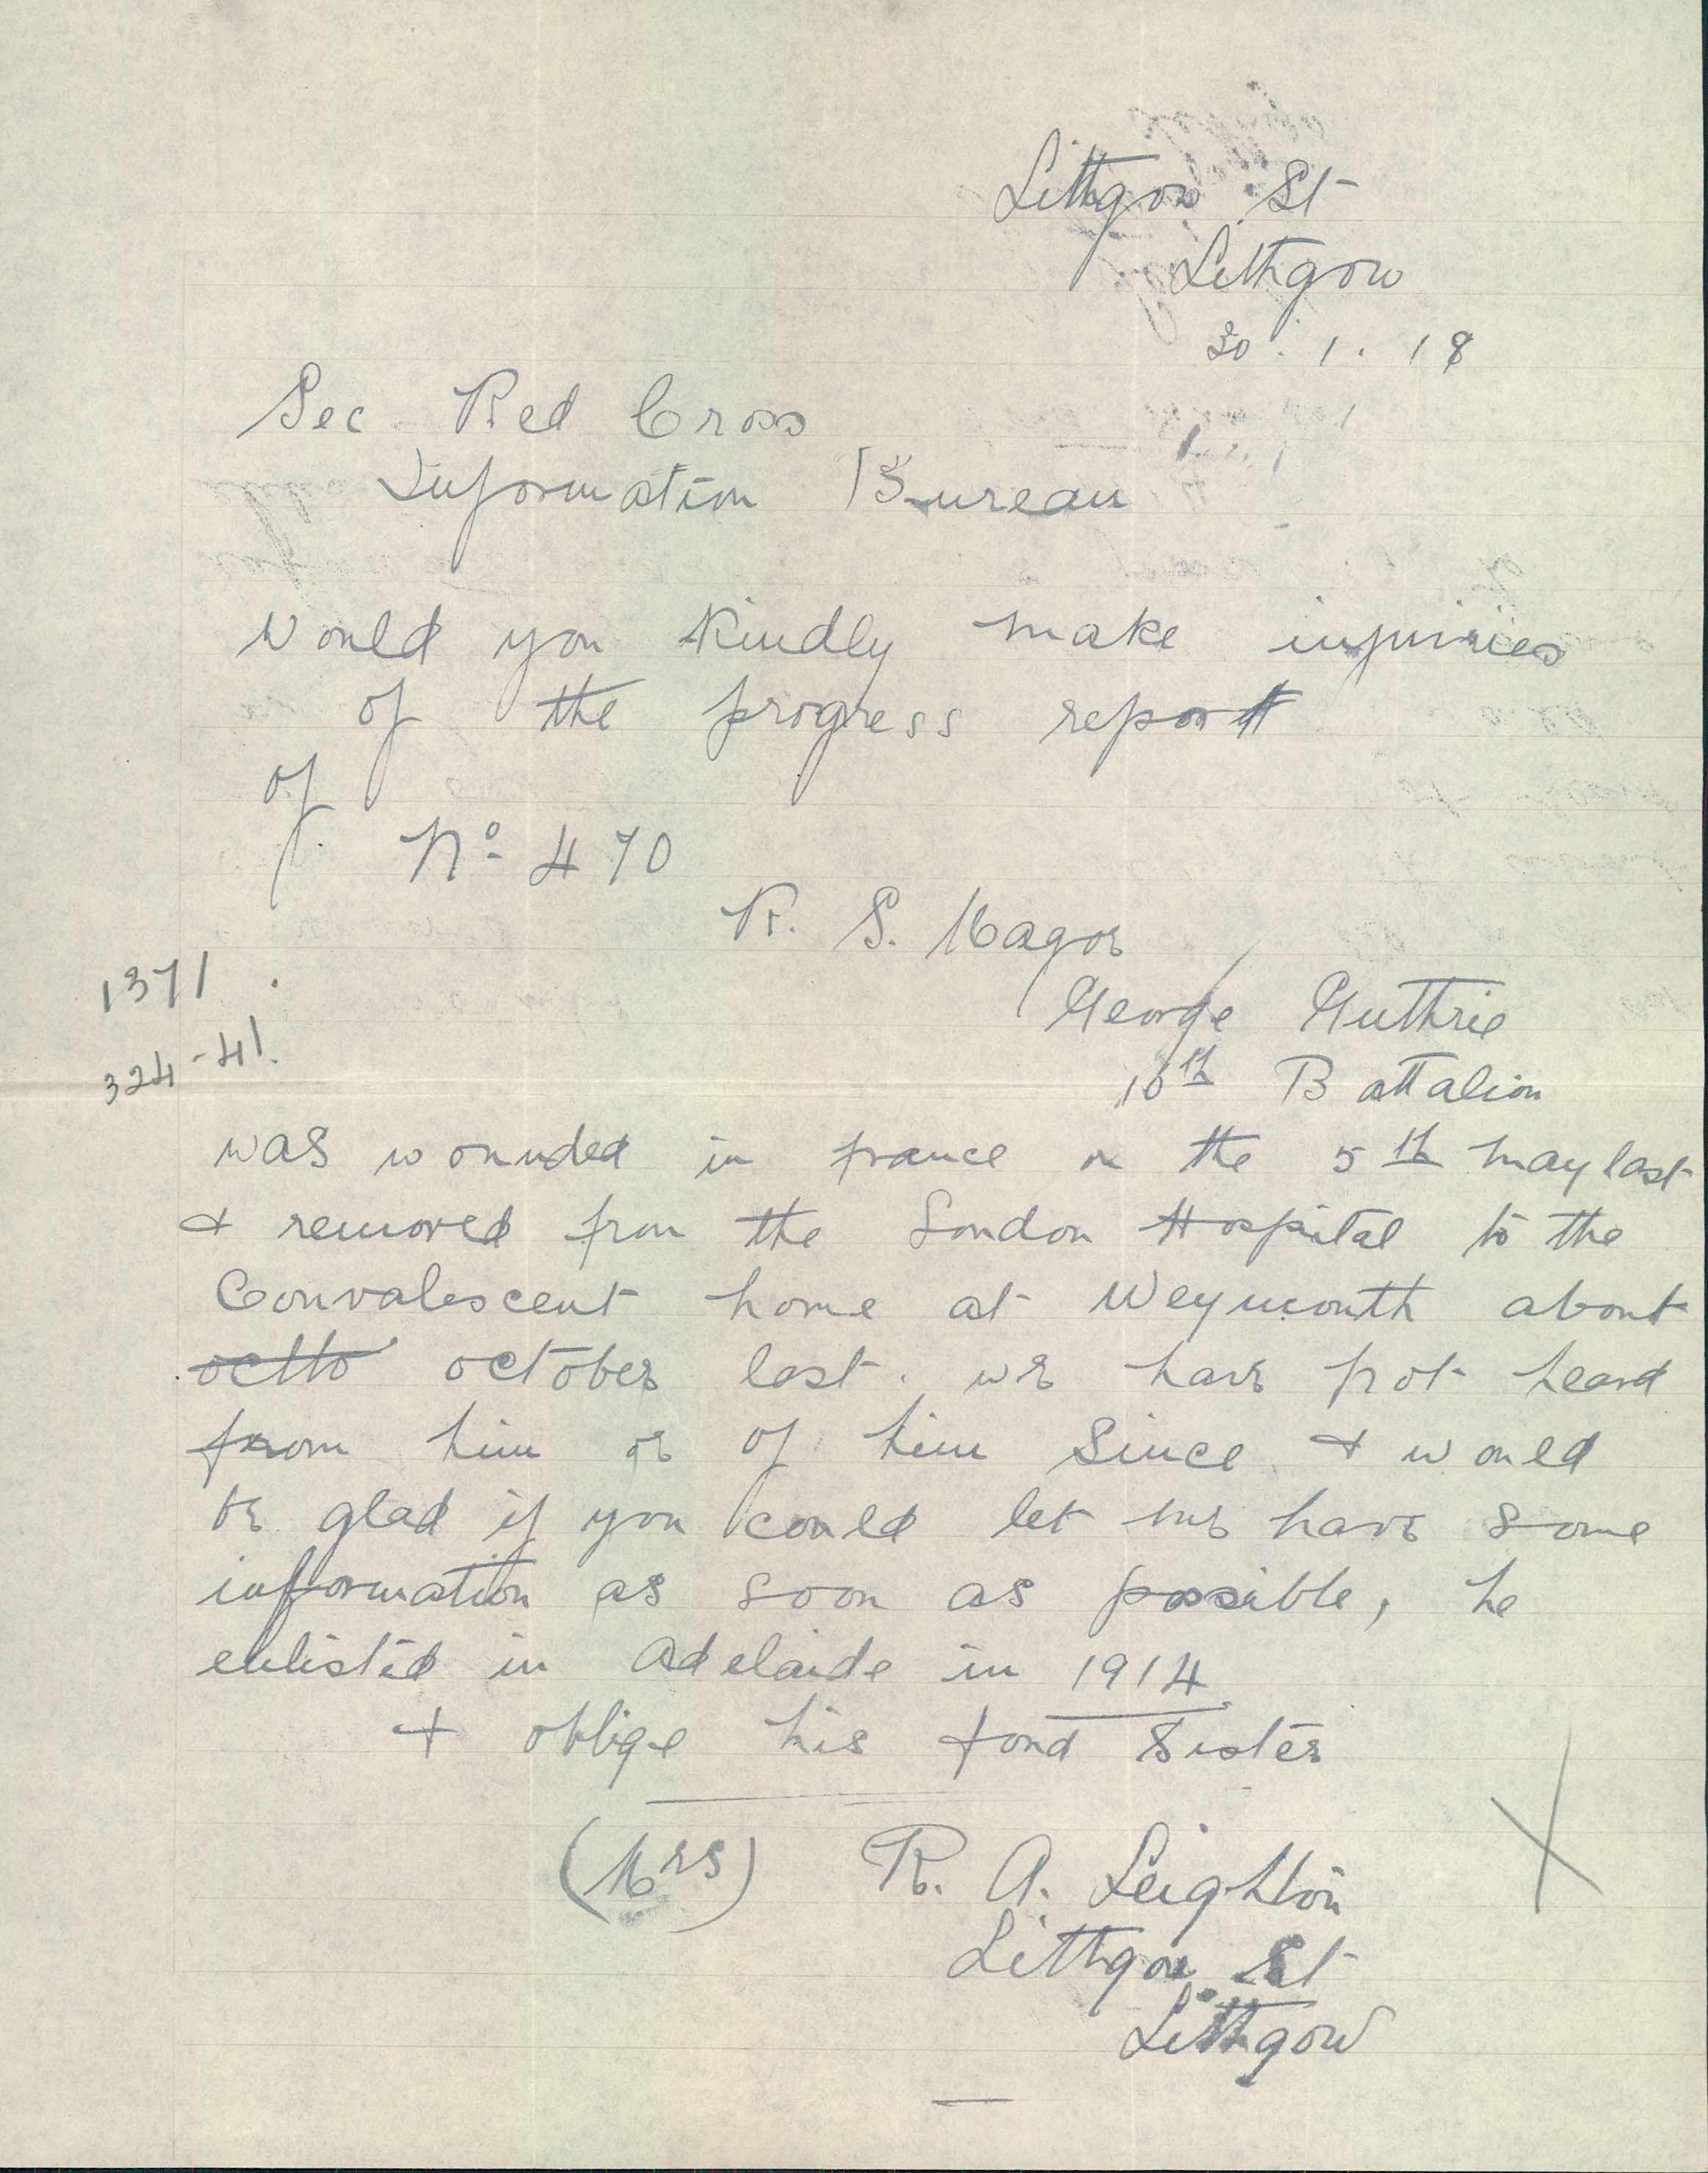 Lithgow St
Lithgow
30.1.18
Sec Red Cross
Information Bureau
Would you kindly make inquiries
of the progress report
of
No 470
R. S. Magor
George Guthrie
1371
10th Battalion
324-41.
was wounded in france on the 5th may last
& removed from the London Hospital to the
Convalescent home at Weymouth about
octto october last. we have not heard
from him or of him Since & would
be glad if you could let me have some
information as soon as possible, he
enlisted in Adelaide in 1914
& oblige his fond Sister
(Mrs) R. A. Leighton
Lithgow St
Lithgow